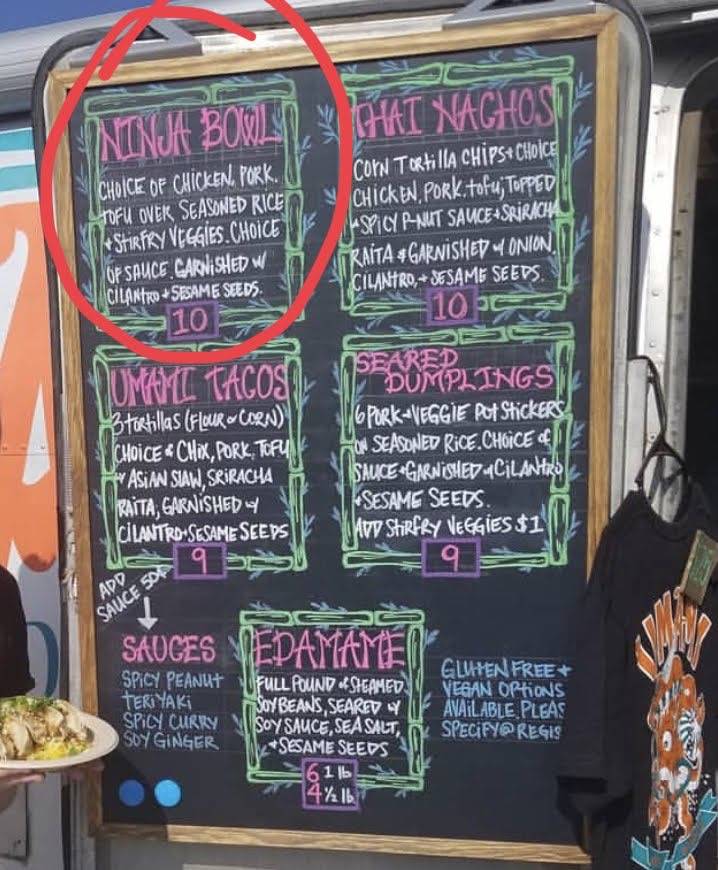 NINJA BOWL
CHOICE OF CHICKEN, PORK.
TOFU OVER SEASONED RICE
+ STIRFRY VEGGIES. CHOICE
OF SAUCE. GARNISHED W/
CILANTRO + SESAME SEEDS.
10
THAI NACHOS
CORN TORTILLA CHIPS + CHOICE
CHICKEN, PORK, TOFU, TOPPED
W SPICY P-NUT SAUCE + SRIRACHA
RAITA & GARNISHED W ONION,
CILANTRO, + SESAME SEEDS.
10
UMAMI TACOS
3 TORTILLAS (FLOUR OR CORN)
CHOICE of CHIX, PORK, TOFU
W ASIAN SLAW, SRIRACHA
RAITA, GARNISHED W/
CILANTRO + SESAME SEEDS
9
SEARED
DUMPLINGS
6 PORK + VEGGIE POT STICKERS
ON SEASONED RICE. CHOICE of
SAUCE + GARNISHED W CILANTRO
+ SESAME SEEDS.
ADD STIRFRY VEGGIES $1
9
ADD
SAUCE 50¢
SAUCES
SPICY PEANUT
TERIYAKI
SPICY CURRY
SOY GINGER
EDAMAME
FULL POUND of STEAMED
SOYBEANS, SEARED W/
SOY SAUCE, SEA SALT,
+ SESAME SEEDS
6 1 lb
4 ½ lb
GLUTEN FREE +
VEGAN OPTIONS
AVAILABLE. PLEAS
SPECIFY @ REGIS
UMAMI